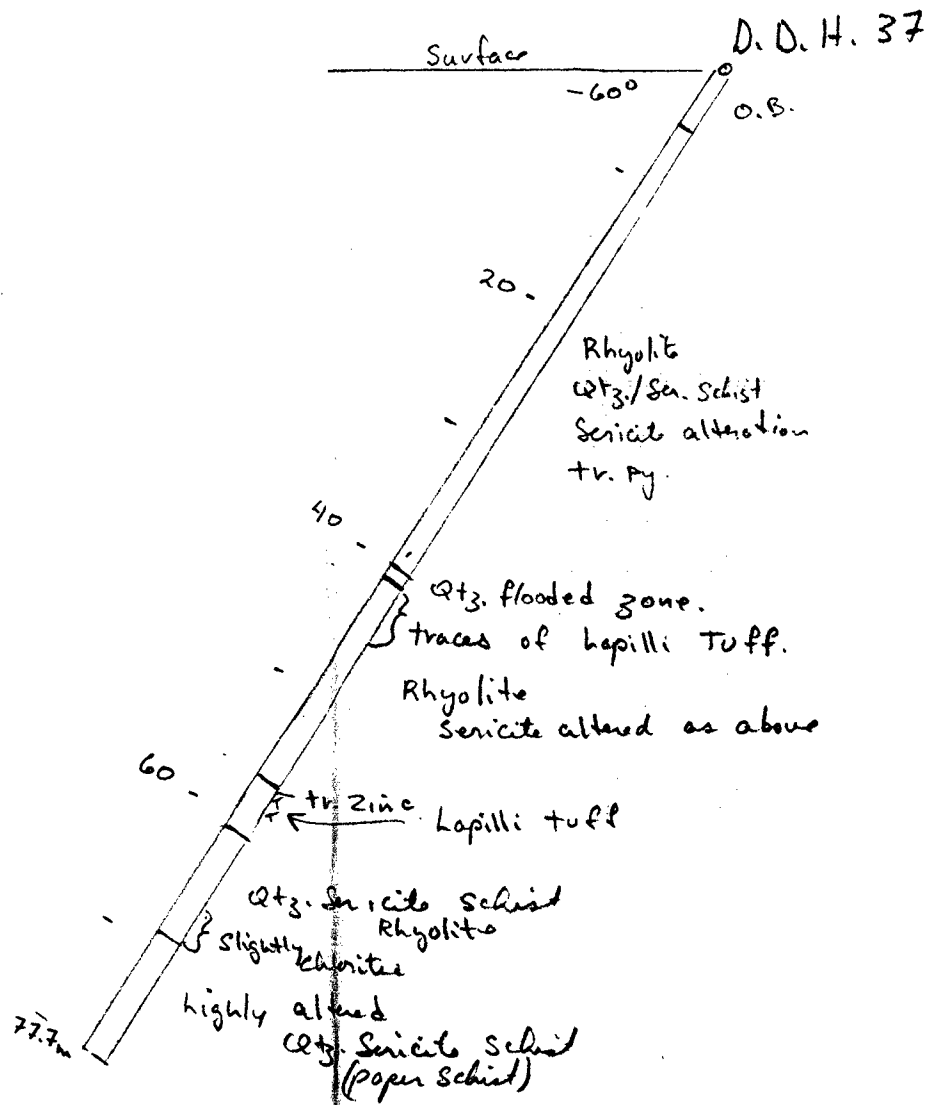 D.D.H. 37
Surface
-60°
O.B.
20
Rhyolite
Qtz./Ser. Schist
Sericite alteration
tr. py.
40
Qtz. flooded zone.
traces of Lapilli Tuff.
Rhyolite
Sericite altered as above
60
tr. zinc
Lapilli tuff
Qtz. Sericite schist
Rhyolite
Slightly
chlorites
highly altered
77.7m
Qtz. Sericite schist
(paper schist)